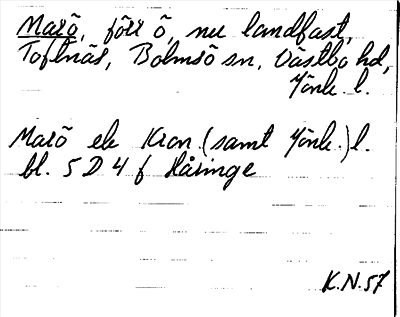 Marö, förr ö, nu landfast,
Toftnäs, Bolmsö sn, Västbo hd,
Jönk. l.
Marö ek Kron. (samt Jönk.) l.
bl. 5 D 4 f Håringe
K.N. 57